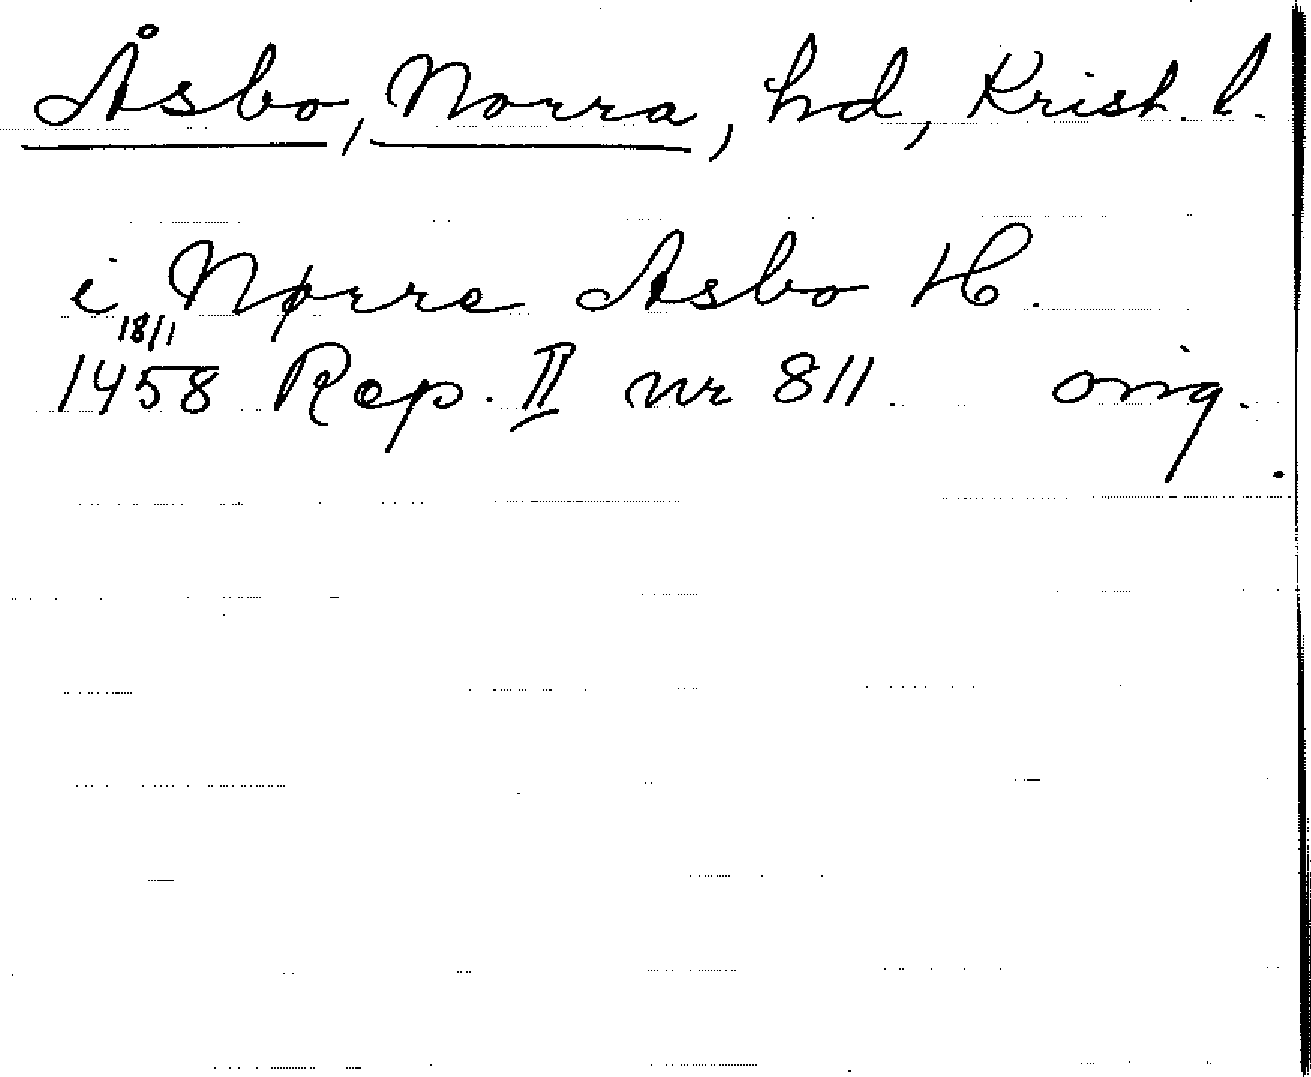 Åsbo, Norra, hd, Krist. l.
i Nørre Asbo H.
18/1
1458 Rep. II nr 811 orig.